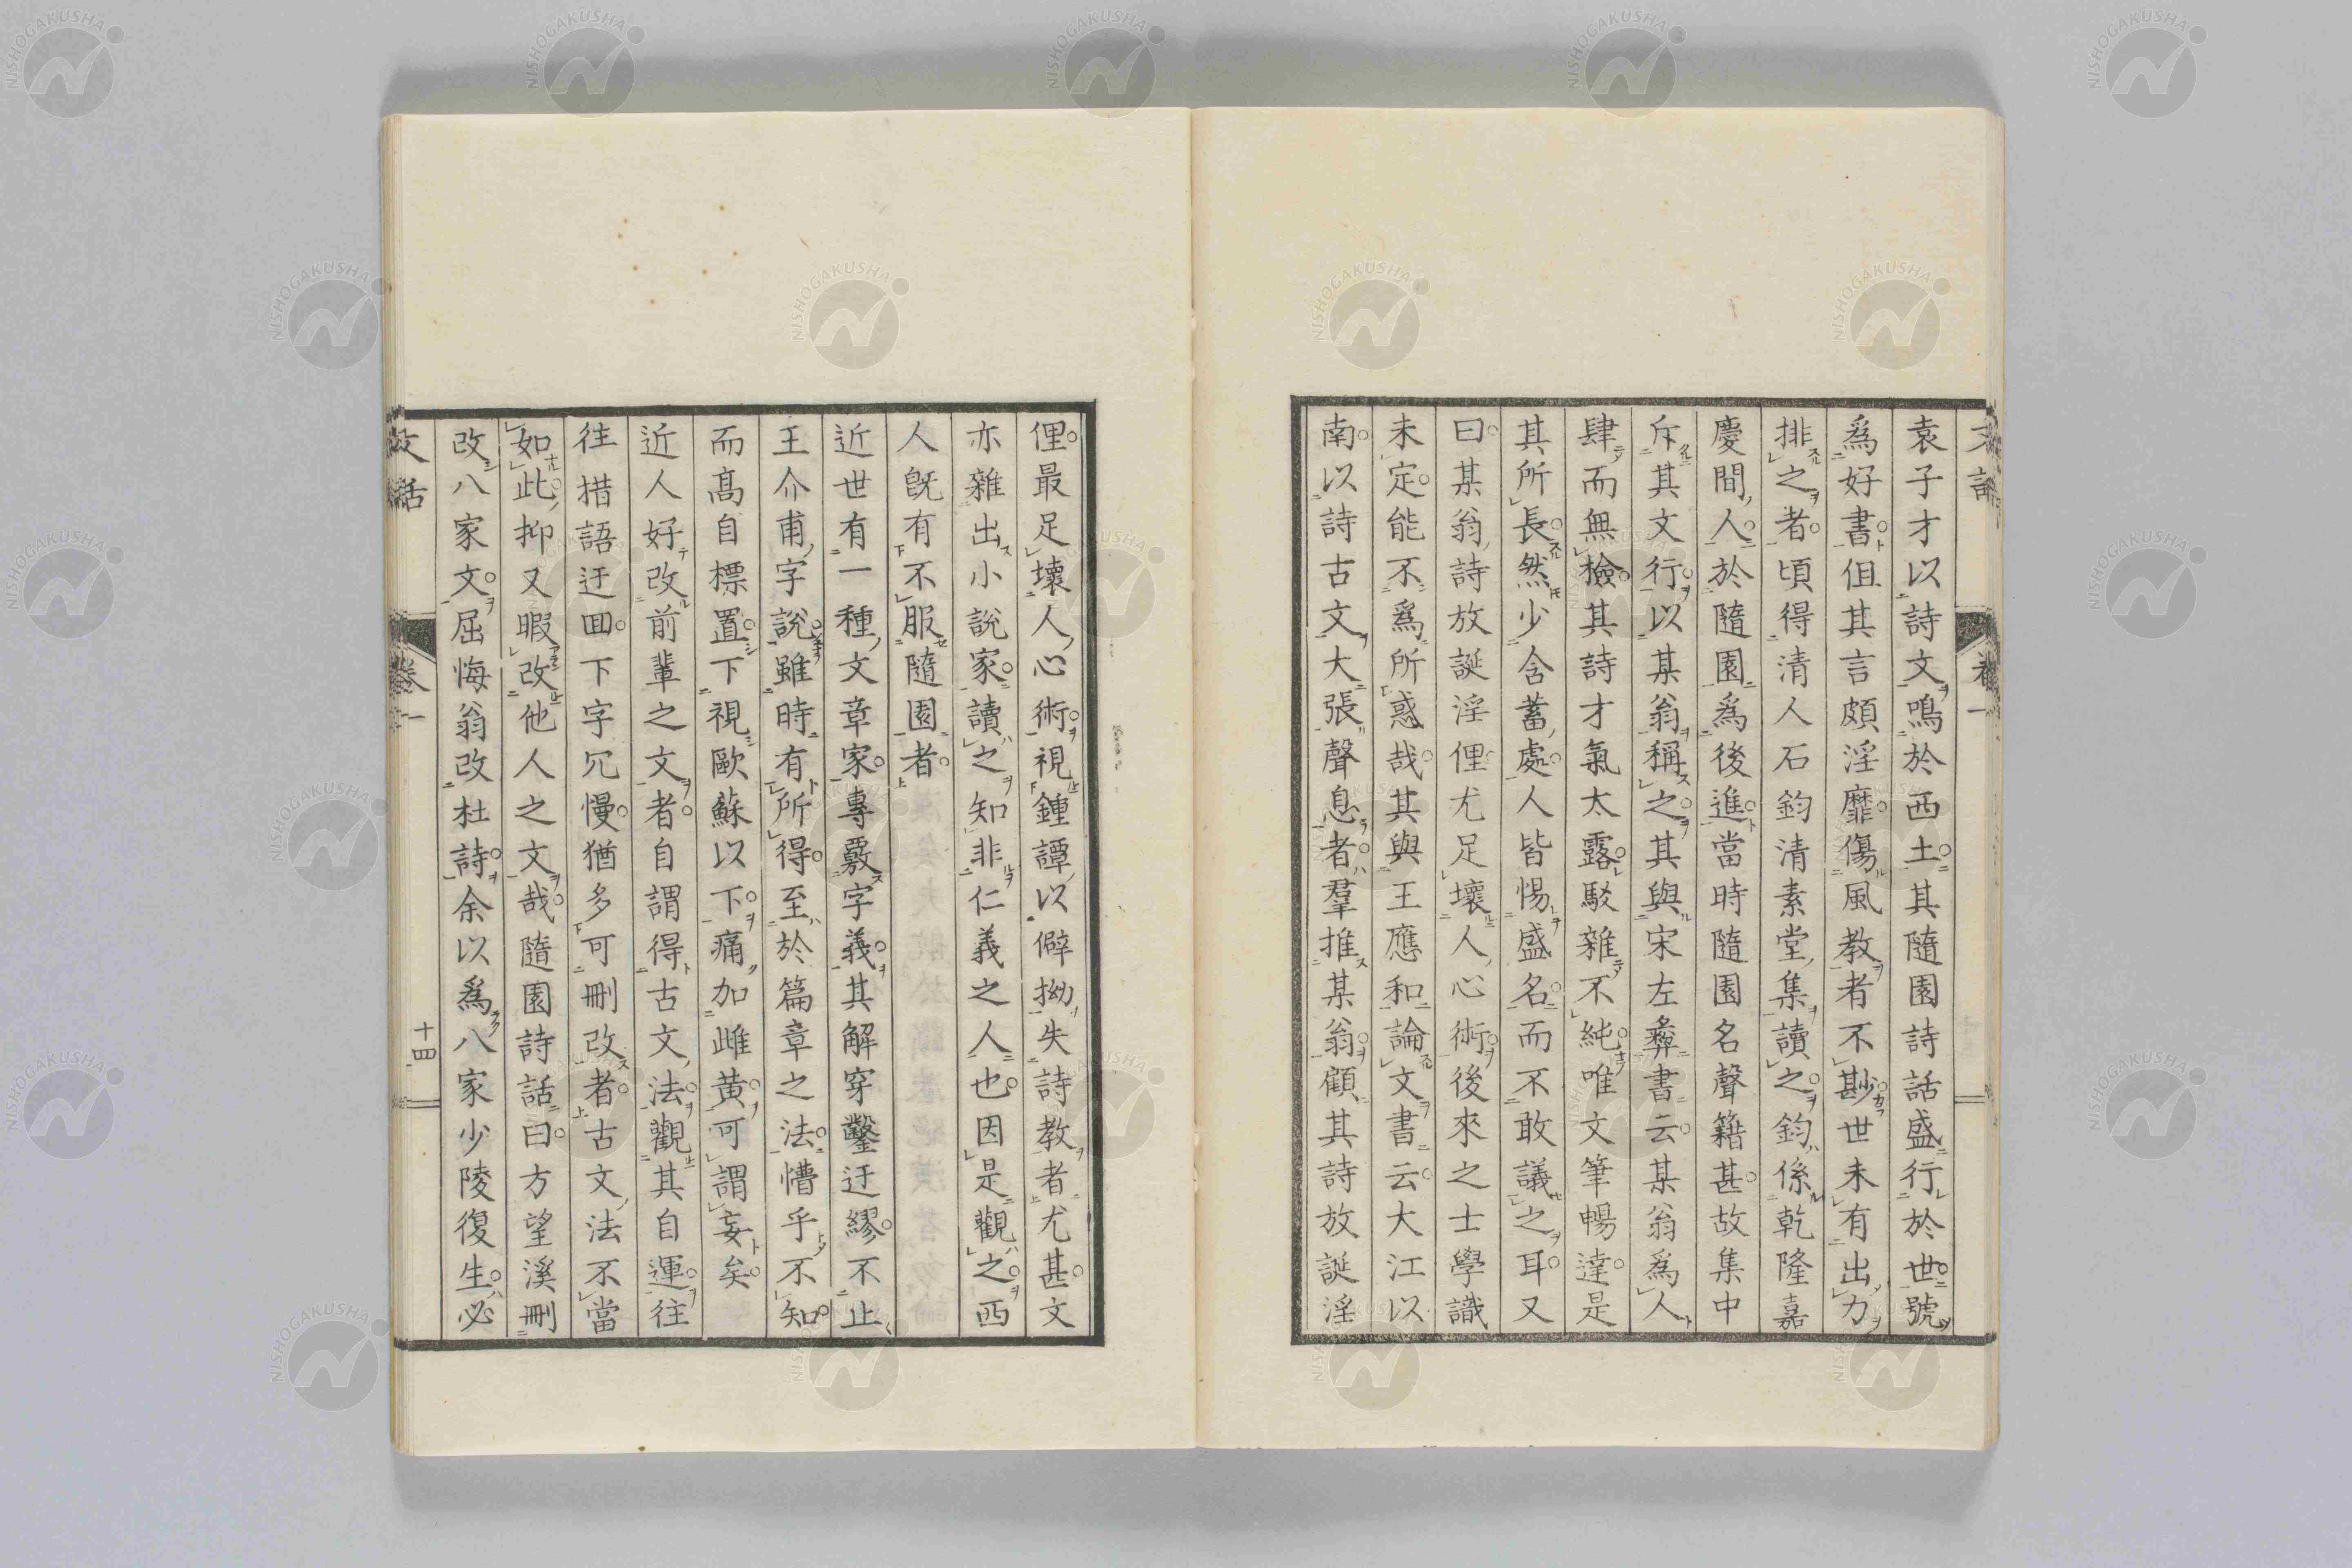 袁子才以詩文鳴於西土其隨園詩話盛行於世號
爲好書但其言頗淫靡傷風教者不尠世未有出力
排之者頃得清人石鈞清素堂集讀之鈞係乾隆嘉
慶間人於隨園爲後進當時隨園名聲籍甚故集中
斥其文行以某翁稱之其與宋左彝書云某翁爲人
肆而無檢其詩才氣太露駁雜不純唯文筆暢達是
其所長然少含蓄處人皆惕盛名而不敢議之耳又
曰某翁詩放誕淫俚尤足壞人心術後來之士學識
未定能不爲所惑哉其與王應和論文書云大江以
南以詩古文大張聲息者羣推某翁顧其詩放誕淫
俚最足壞人心術視鍾譚以僻拗失詩教者尤甚文
亦雜出小說家讀之知非仁義之人也因是觀之西
人既有不服隨園者
近世有一種文章家專覈字義其解穿鑿迂繆不止
王介甫字說雖時有所得至於篇章之法懵乎不知
而高自標置下視歐蘇以下痛加雌黃可謂妄矣
近人好改前輩之文者自謂得古文法觀其自運往
往措語迂回下字冗慢猶多可刪改者古文法不當
如此抑又暇改他人之文哉隨園詩話曰方望溪刪
改八家文屈悔翁改杜詩余以爲八家少陵復生必
文話
卷一
十四